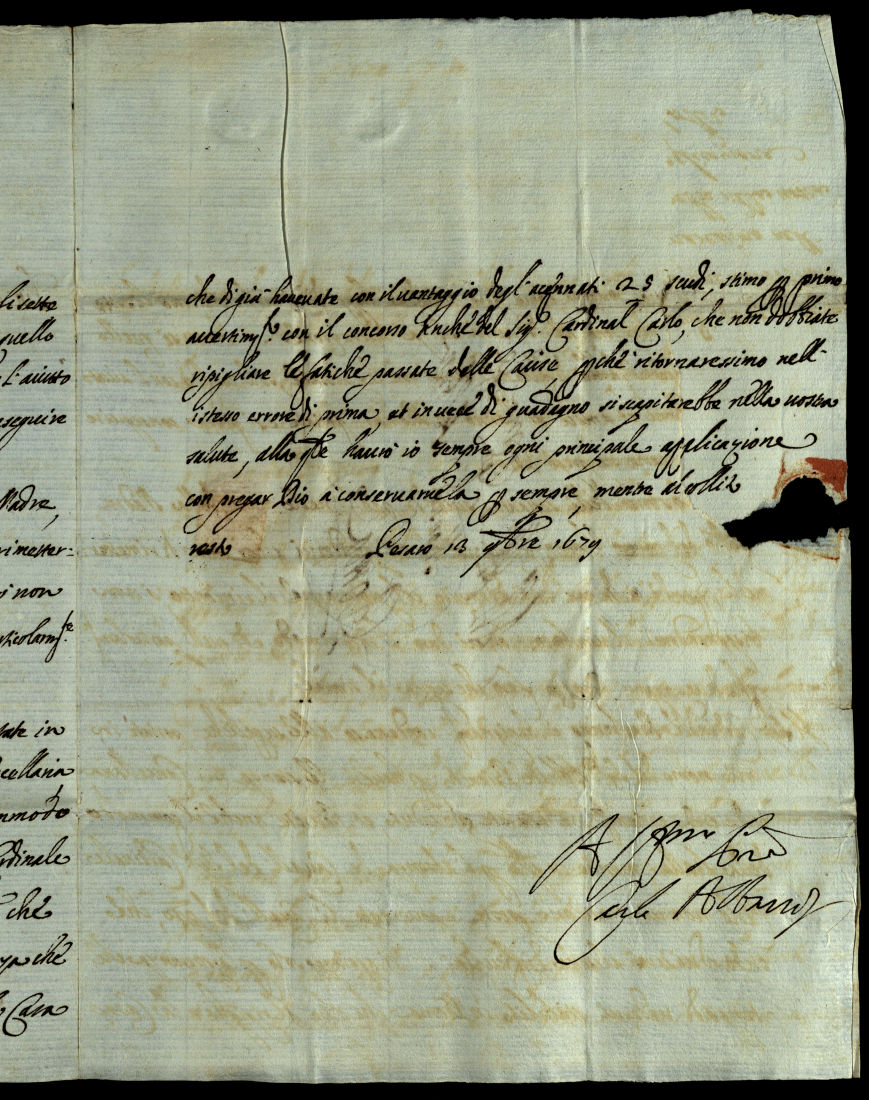 li sette
quello
l'aiuto
eseguire
Madre,
rimetter=
i non
ticolarm.te
ate in
cellaria
mmodo
rdinale
che
ya che
Casa
che di già haveuate con il vantaggio degl' accennati 25 scudi, stimo p primo
avertim.to con il concorso anche del Sig.r Cardinal Carlo, che non dobbiate
ripigliare le fatiche passate delle Cause, p che ritornaressimo nell'
istesso errore di prima, et in vece di guadagno si scapitarebbe nella vostra
salute, alla q.le haurò io sempre ogni principale applicazione
con pregar Dio à conservarmela p sempre, mentre al solito
resto Pesaro 13 9bre 1679
Aff.mo Pre
Carlo Albani